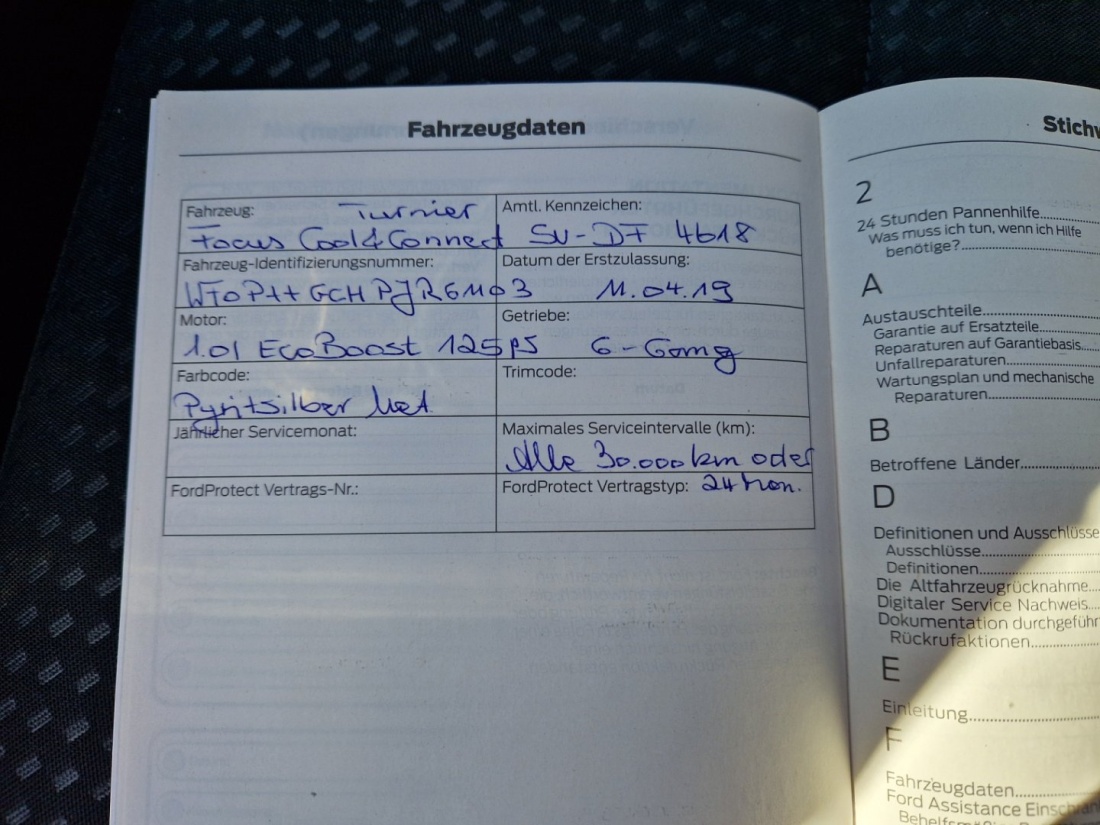 Fahrzeugdaten
Fahrzeug: Turnier
Focus Cool&Connect
Amtl. Kennzeichen:
SU-DF 4618
Fahrzeug-Identifizierungsnummer:
Datum der Erstzulassung:
11.04.19
Motor:
1.0l EcoBoast 125PS
Getriebe:
6-Gang
Farbcode:
Pyritsilber Met.
Trimcode:
Jährlicher Servicemonat:
Maximales Serviceintervalle (km):
Alle 30.000 km oder
FordProtect Vertrags-Nr.:
FordProtect Vertragstyp: 24 Mon.
Stichw
2
24 Stunden Pannenhilfe
Was muss ich tun, wenn ich Hilfe
benötige?
A
Austauschteile
Garantie auf Ersatzteile
Reparaturen auf Garantiebasis
Unfallreparaturen
Wartungsplan und mechanische
Reparaturen
B
Betroffene Länder
D
Definitionen und Ausschlüsse
Ausschlüsse
Definitionen
Die Altfahrzeugrücknahme
Digitaler Service Nachweis
Dokumentation durchgeführ
Rückrufaktionen
E
Einleitung
F
Fahrzeugdaten
Ford Assistance Einschrän